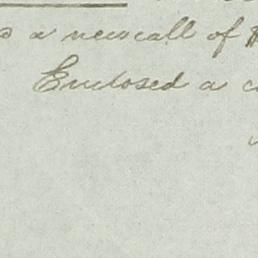 a new call of
Enclosed a